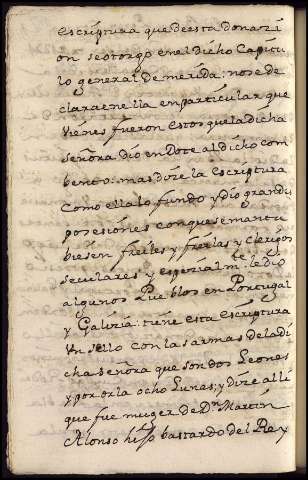 escriptura que de esta donazi
on se otorgo en el dicho Capitu
lo general de merida: no se de
clara en ella en particular que
vienes fueron estos que la dicha
señora dio en Dote al dicho com
bento: mas dize la escriptura
como ella lo fundo y dio grandes
posesiones con que se mantu
biesen freiles y freilas y clerigos
seculares y espezialmte le dio
algunos Pueblos en Portugal
y Galizia: tiene esta escriptura
un sello con las armas de la di
cha señora que son dos Leones
y por orla ocho Lunas; y dize alli
que fue muger de Dn Martin
Alonso hijo bastardo del Rey